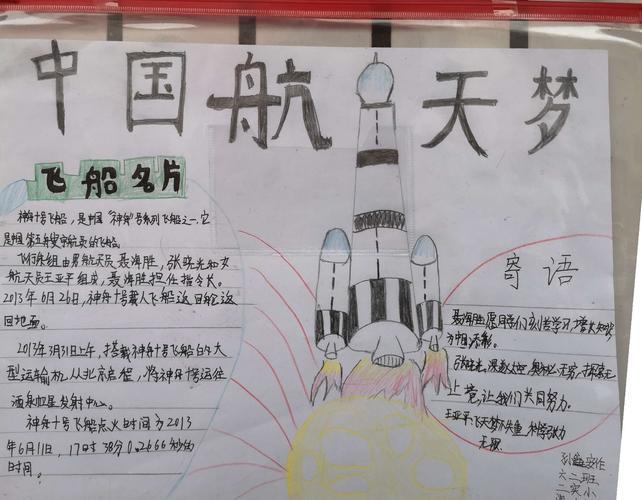 中国航天梦
飞船名片
神舟十号飞船，是中国"神舟"号系列飞船之一，它
是中国第五艘载人飞船。
飞行乘组由男航天员聂海胜，张晓光和女
航天员王亚平组成，聂海胜担任指令长。
2013年6月26日，神舟十号载人飞船返回舱返
回地面。
2013年3月31日上午，搭载神舟十号飞船的大
型运输机从北京启程，将神舟十号运往
酒泉卫星发射中心。
神舟十号飞船点火时间为2013
年6月11日，17时38分0.2666秒
时间。
寄语
聂海胜:愿同学们刻苦学习,增长知识
为中国添彩。
张晓光:
上 让我们共同努力。
王亚平:飞天梦永失重,科学张力
无限.
孙鑫
六二班
二实小